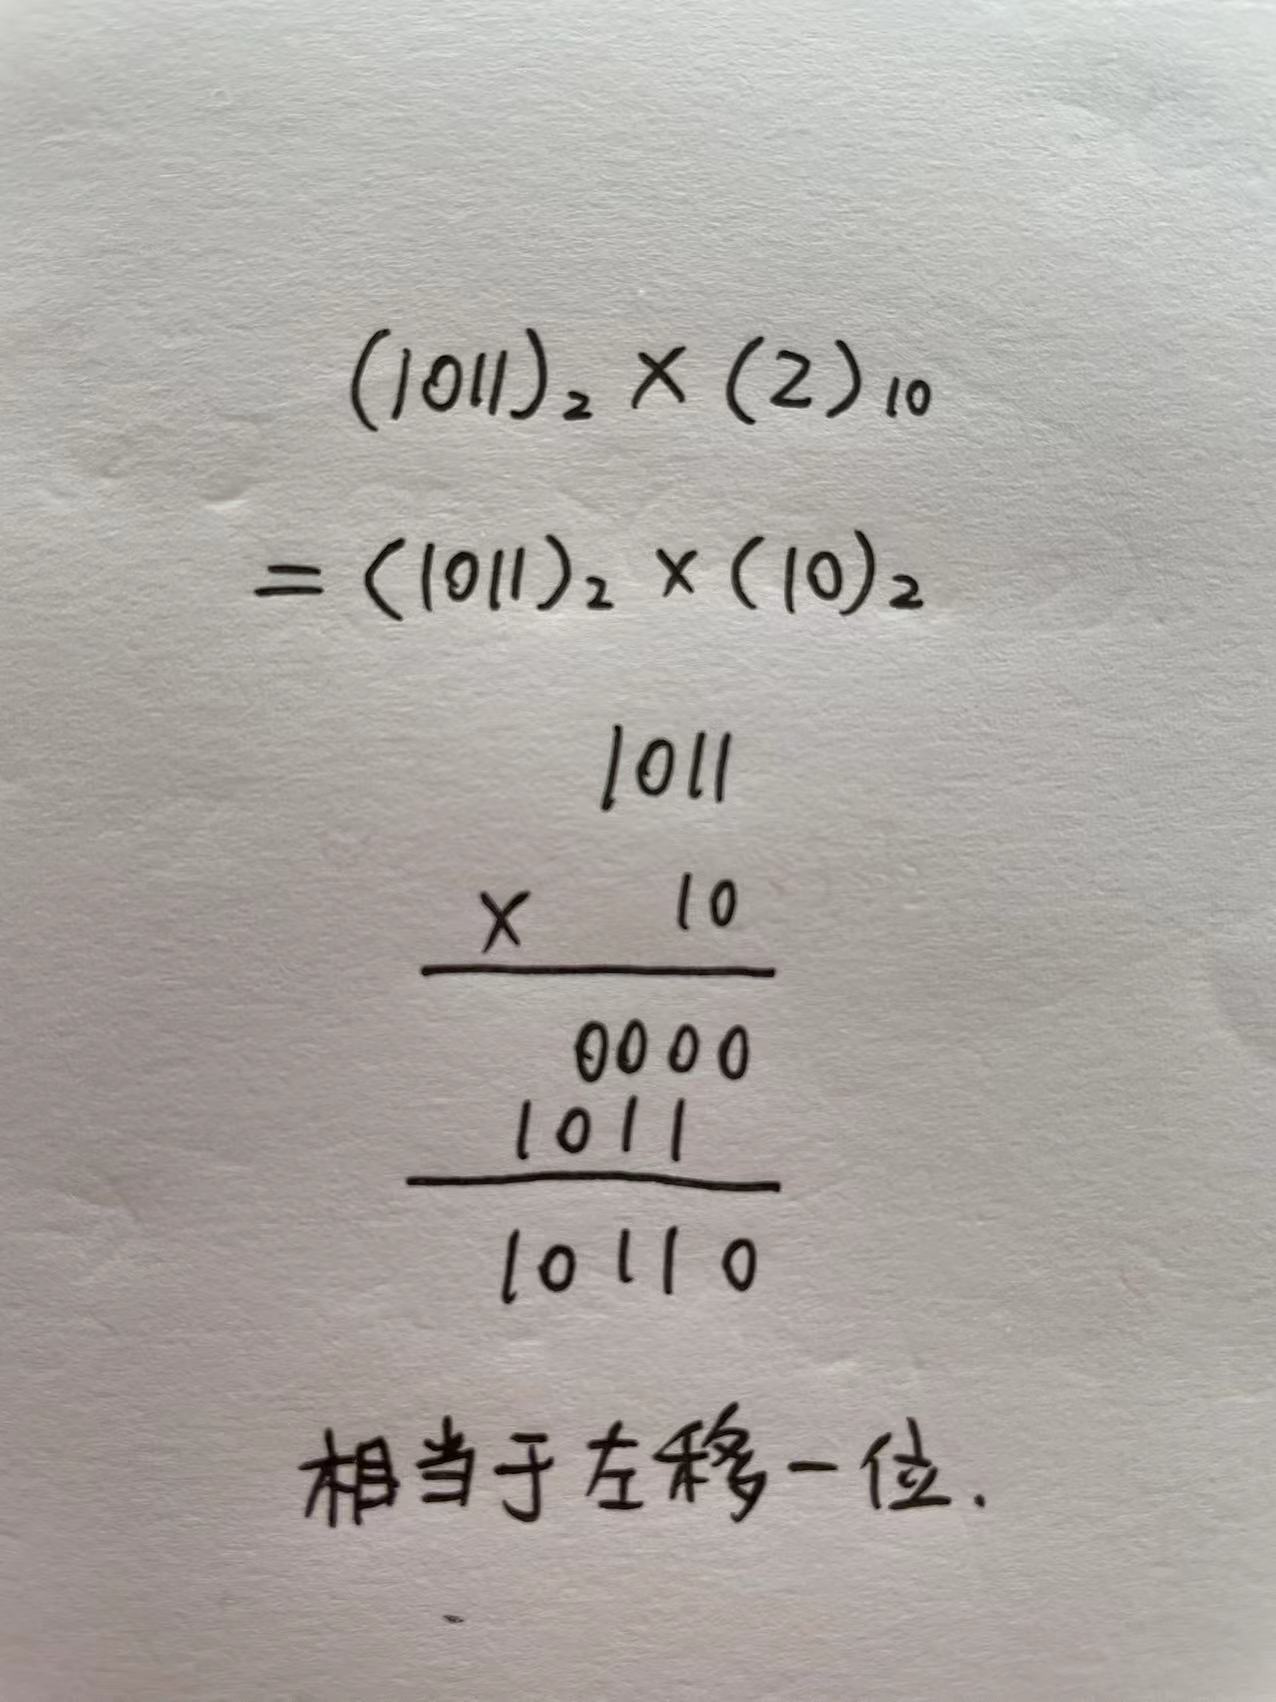 (1011)₂ × (2)₁₀
= (1011)₂ × (10)₂
1011
× 10
0000
1011
10110
相当于左移一位.